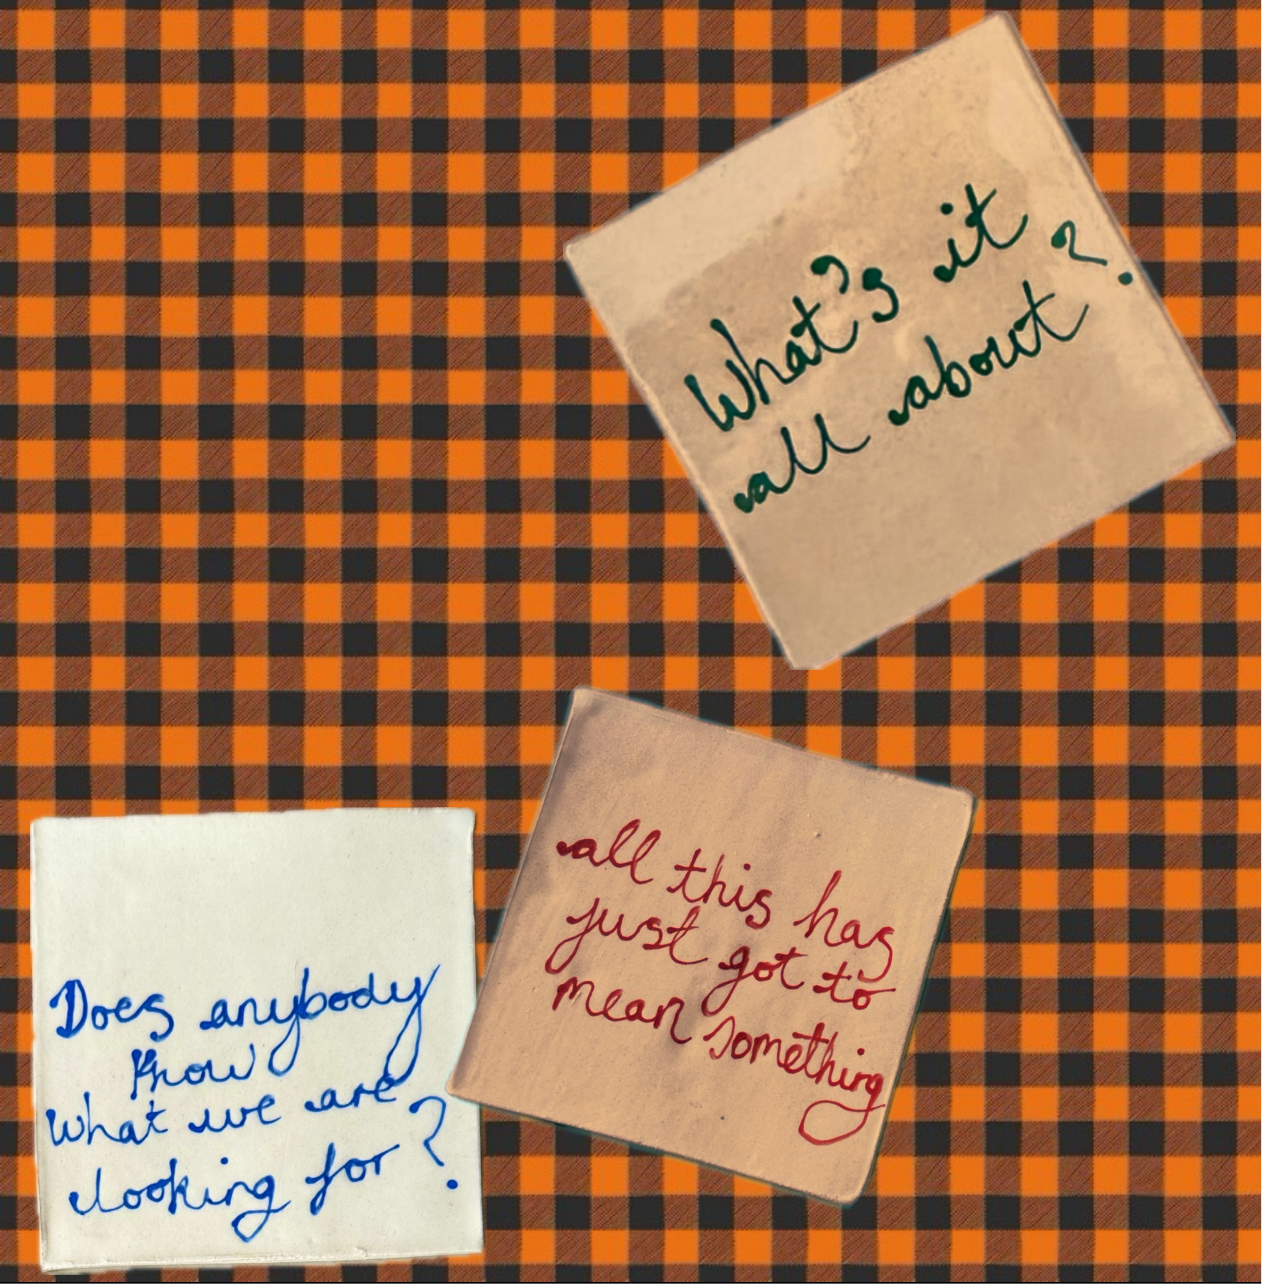 What's it
all about?
all this has
just got to
mean something
Does anybody
know
what we are
looking for?